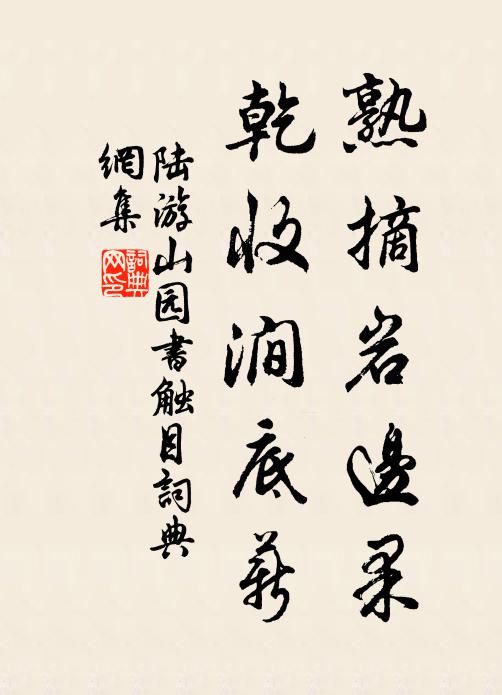 熟摘岩邊果
乾收澗底薪
陆游山园书触目詞典
網集
詞典
网印